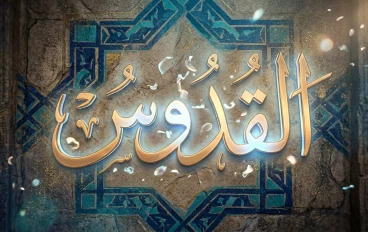 القُدُّوسُ